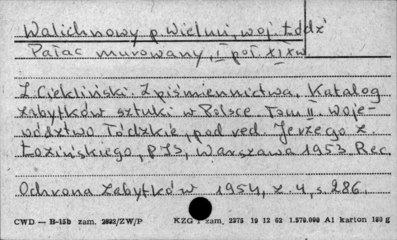 Walichnowy p. Wieluń, woj. Łódź
Pałac murowany, I poł. XIX w
Z. Ciekliński. Z piśmiennictwa. Katalog
zabytków sztuki w Polsce Tom II. Woje-
wództwo Łódzkie, pod red. Jerzego Z.
Łozińskiego, PIS, Warszawa 1953 Rec.
Ochrona Zabytków 1954, z. 4, s. 286.
CWD — B-15b zam. /ZW/P KZG 1 zam. 2375 19 12 62 1.570.000 A1 karton 180 g